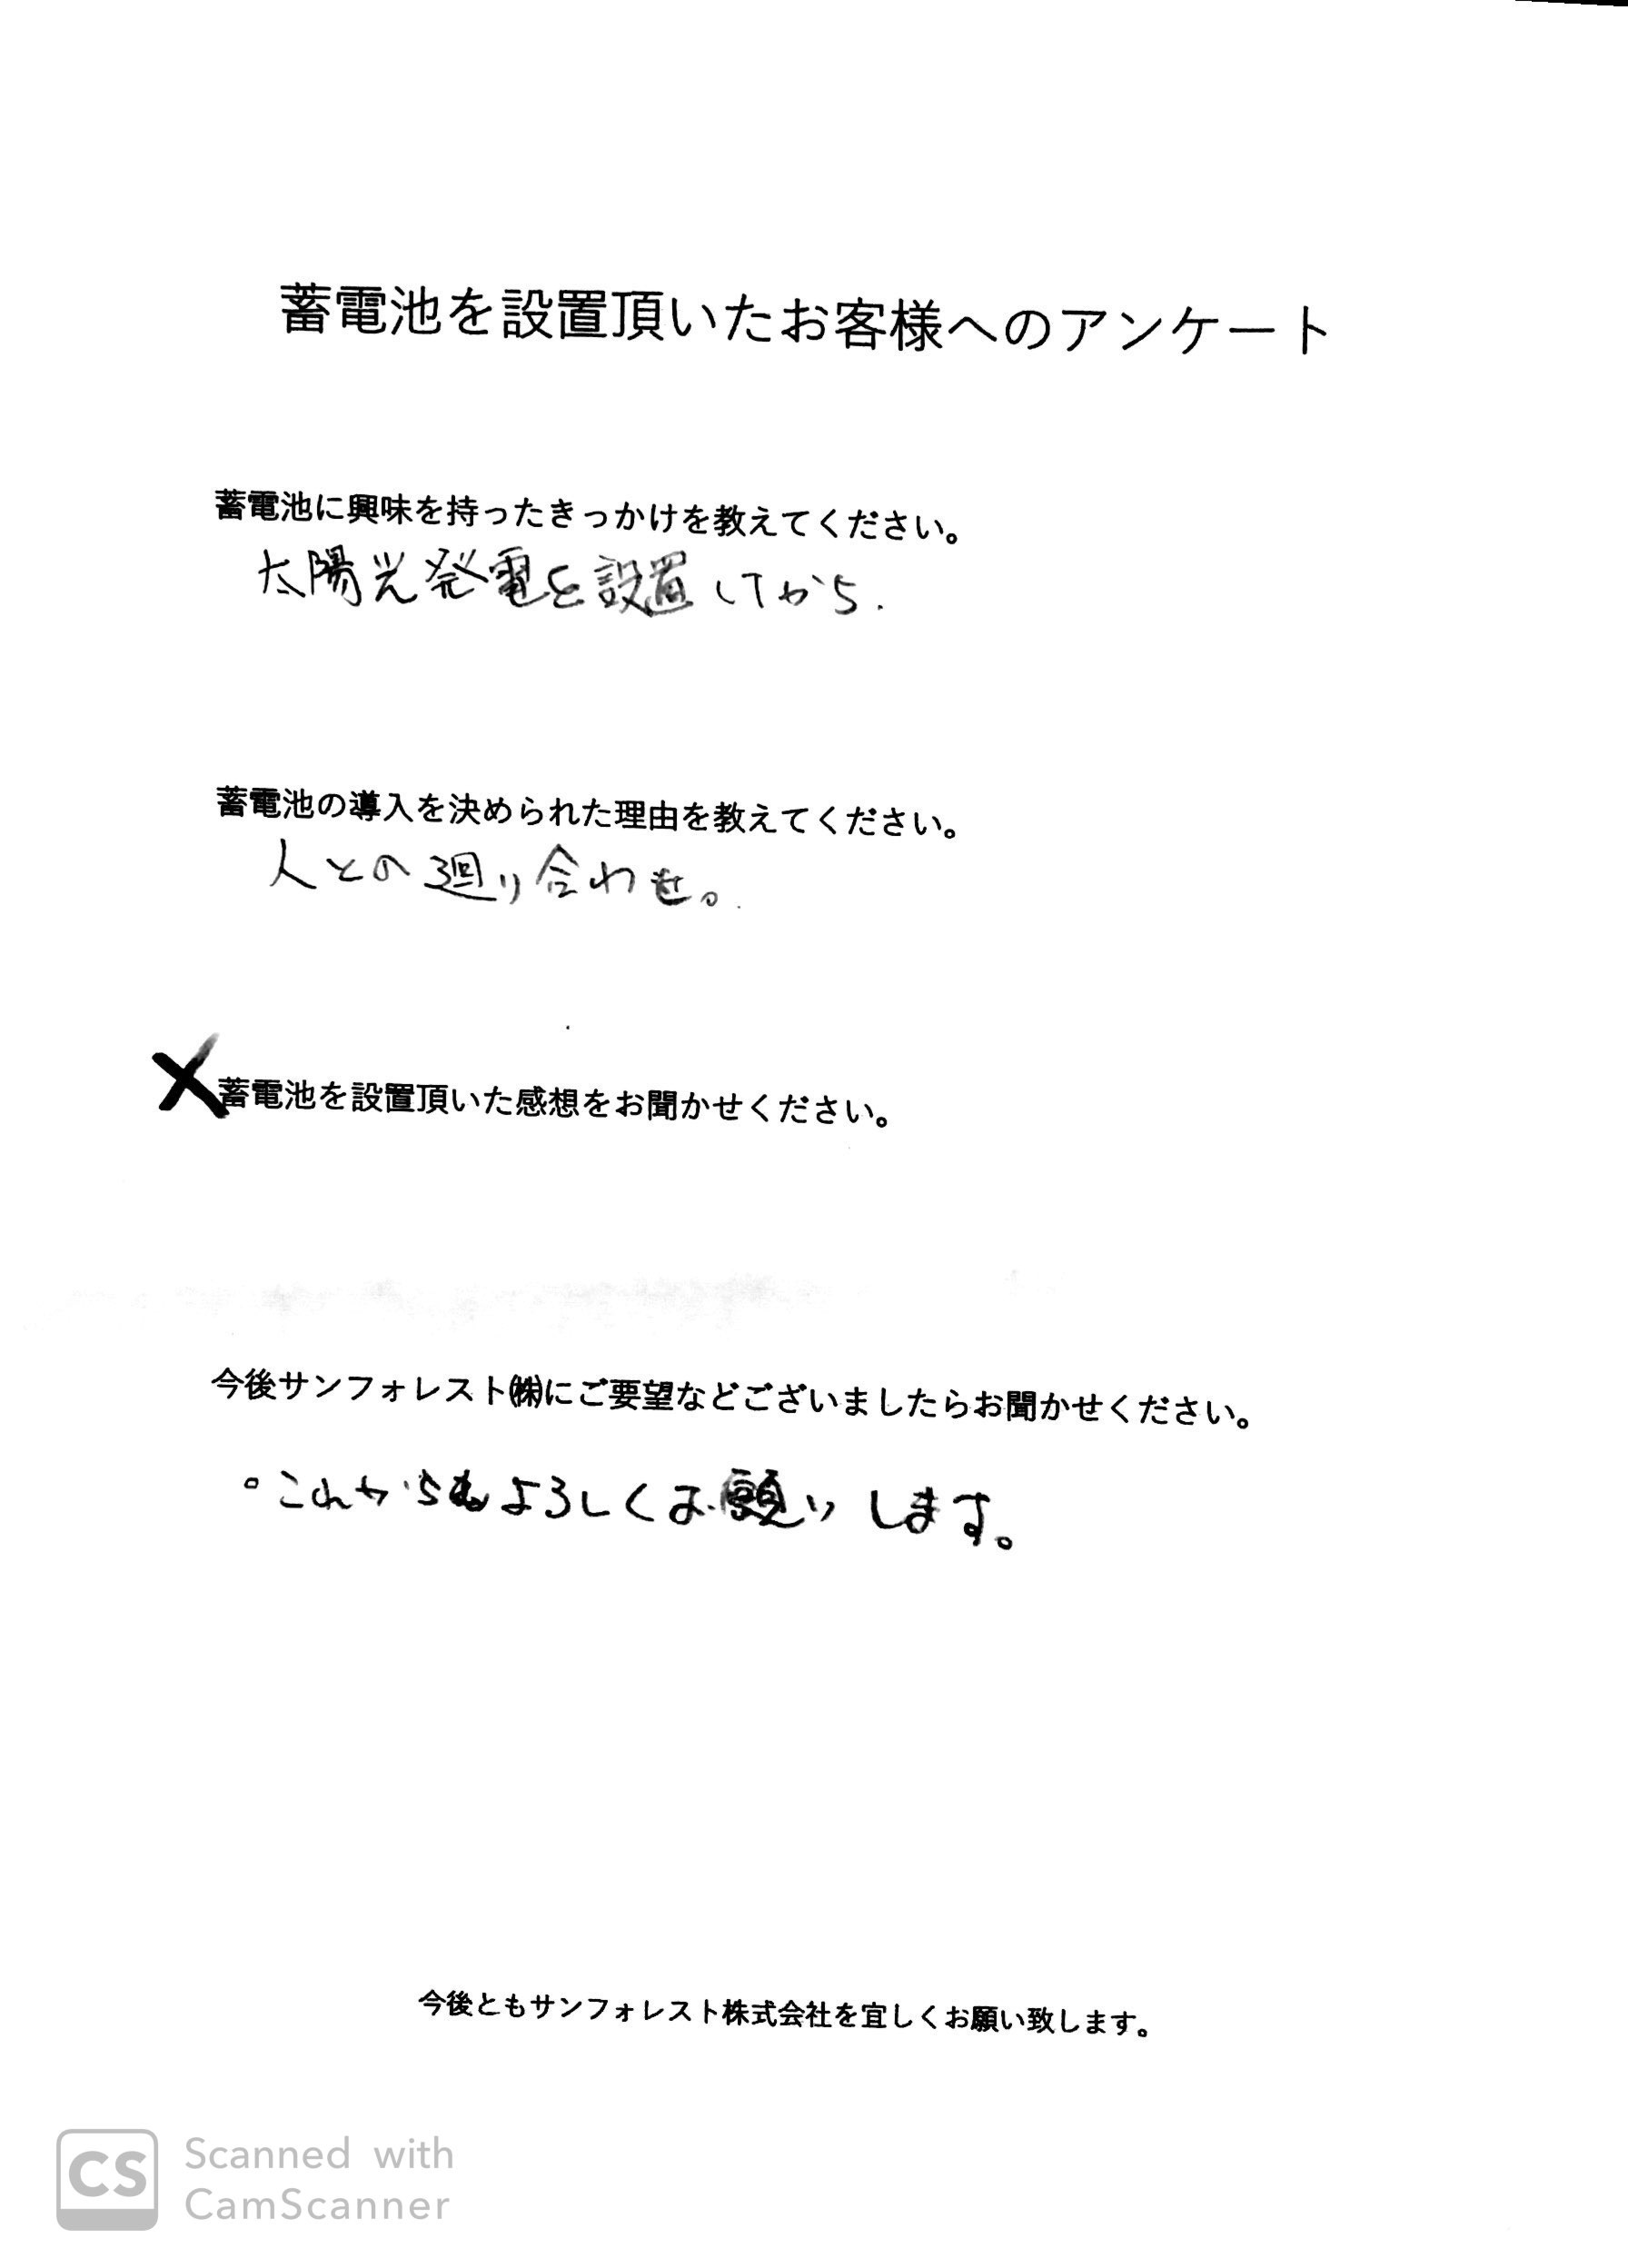 蓄電池を設置頂いたお客様へのアンケート
蓄電池に興味を持ったきっかけを教えてください。
太陽光発電を設置してから.
蓄電池の導入を決められた理由を教えてください。
人との廻り合わせ。
X蓄電池を設置頂いた感想をお聞かせください。
今後サンフォレスト㈱にご要望などございましたらお聞かせください。
。これからもよろしくお願いします。
今後ともサンフォレスト株式会社を宜しくお願い致します。
CS Scanned with
CamScanner